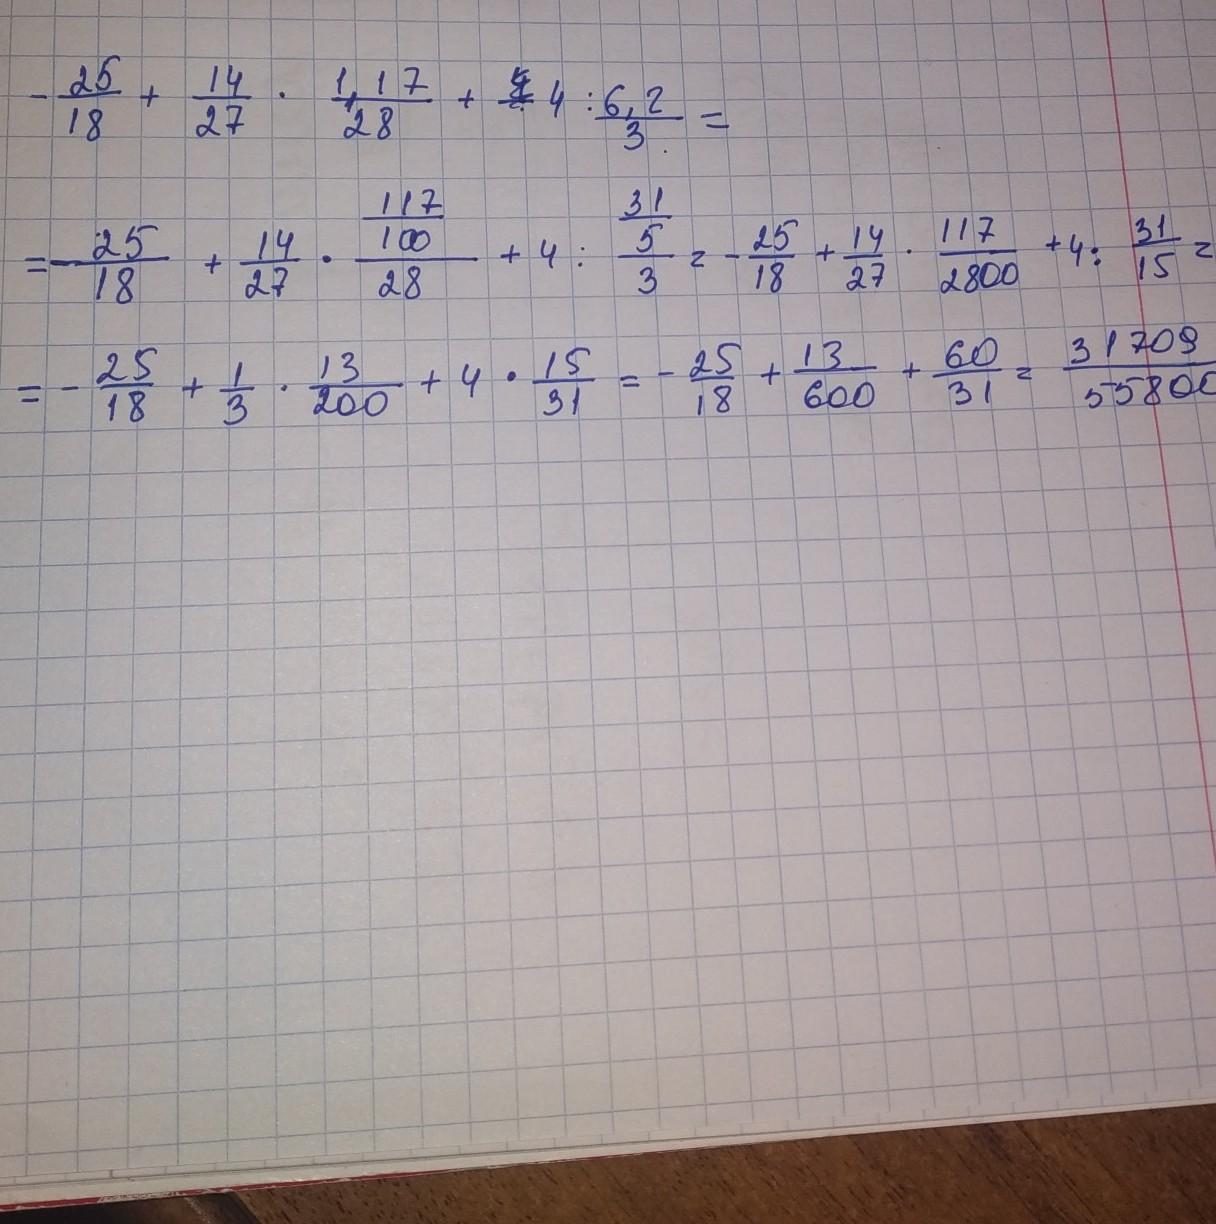 - 25/18 + 14/27 · 1,17/28 + 4 : 6,2/3 =
= - 25/18 + 14/27 · (117/100)/28 + 4 : (31/5)/3 = - 25/18 + 14/27 · 117/2800 + 4 : 31/15 =
= - 25/18 + 1/3 · 13/200 + 4 · 15/31 = - 25/18 + 13/600 + 60/31 = 31709/55800